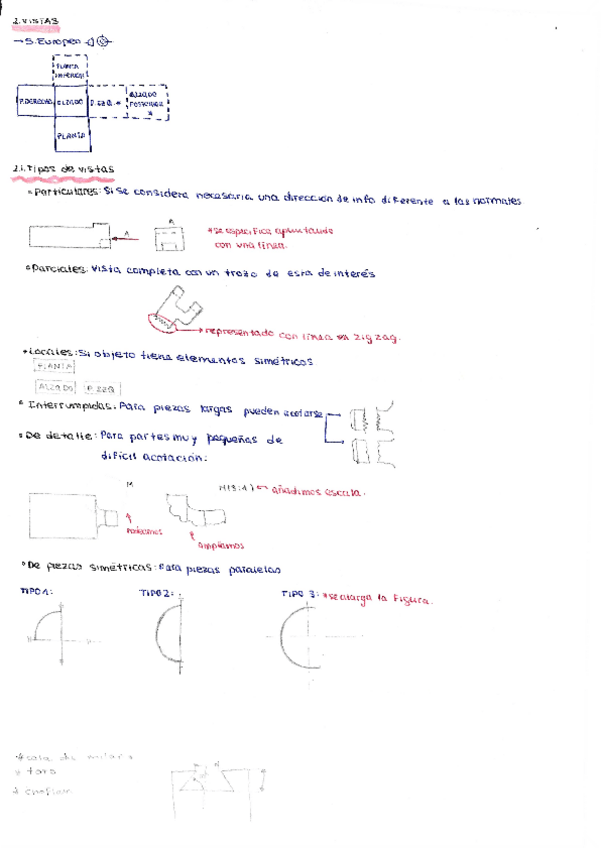 2. VISTAS
→ S. Europeo
PLANTA INFERIOR
P. DERECHO ALZADO P. IZQ. * ALZADO POSTERIOR *
PLANTA
2.1. Tipos de vistas
Particulares: Si se considera necesaria una dirección de info diferente a las normales
A A
*se especifica apuntando
con una línea.
Parciales: Vista completa con un trozo de esta de interés
representado con línea en zig zag.
Locales: Si objeto tiene elementos simétricos
PLANTA
ALZADO P. IZQ
Interrumpidas: Para piezas largas pueden acotarse
De detalle: Para partes muy pequeñas de
difícil acotación.
M M(3:1) añadimos escala.
ampliamos
De piezas simétricas: Para piezas paralelas
TIPO 1: TIPO 2: TIPO 3: *se alarga la figura.
* toro